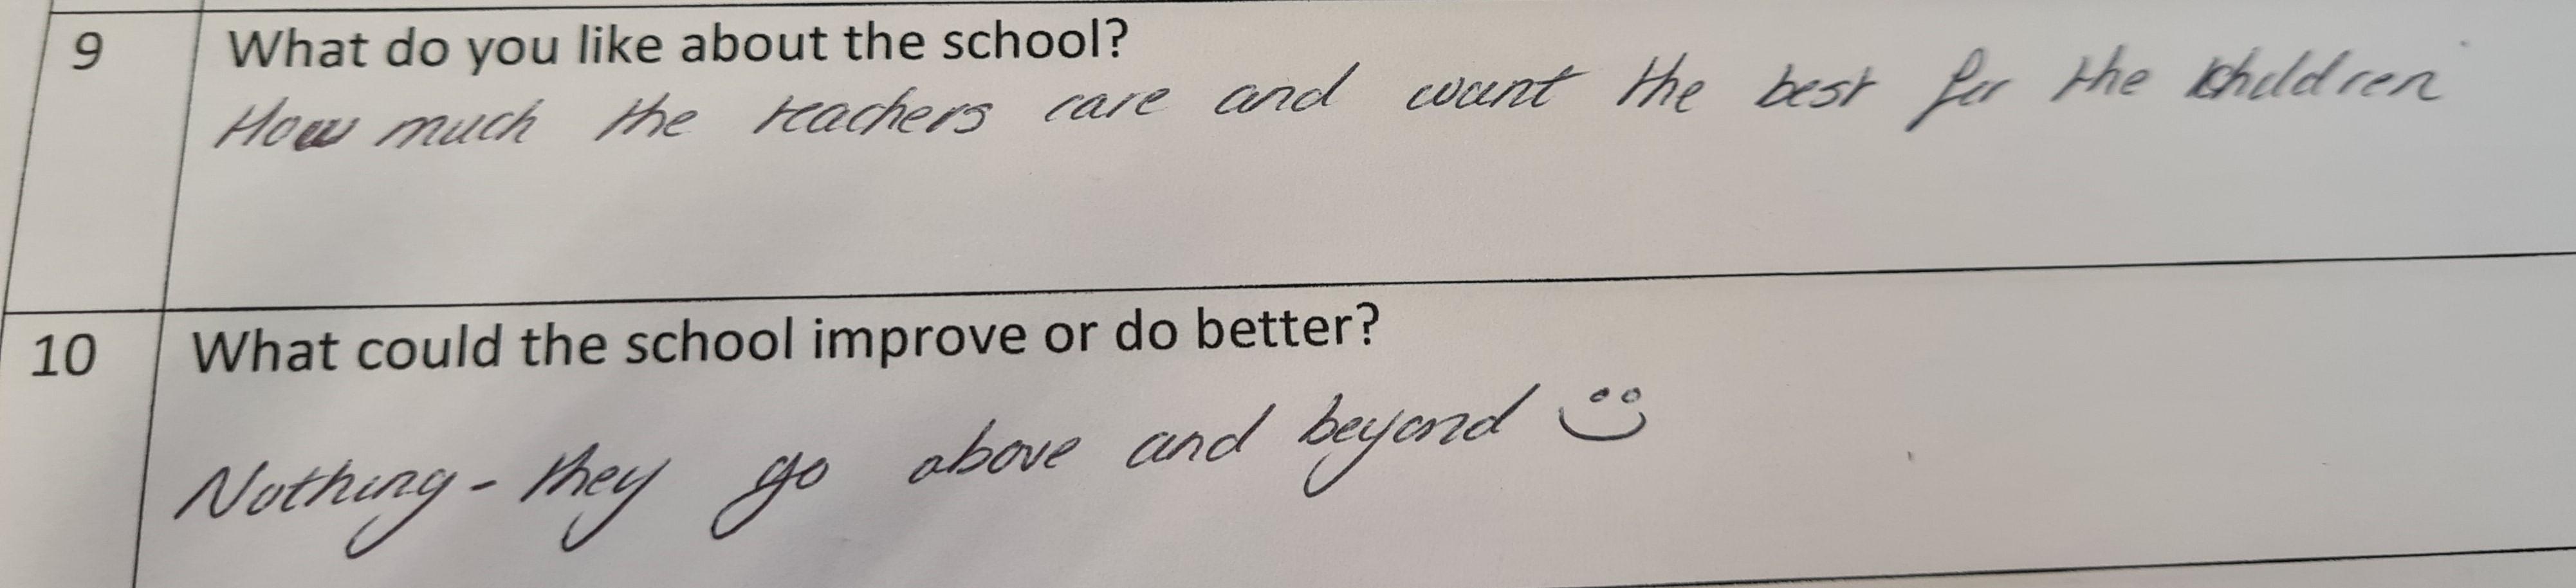 9 What do you like about the school?
How much the teachers care and want the best for the children
10 What could the school improve or do better?
Nothing - they go above and beyond